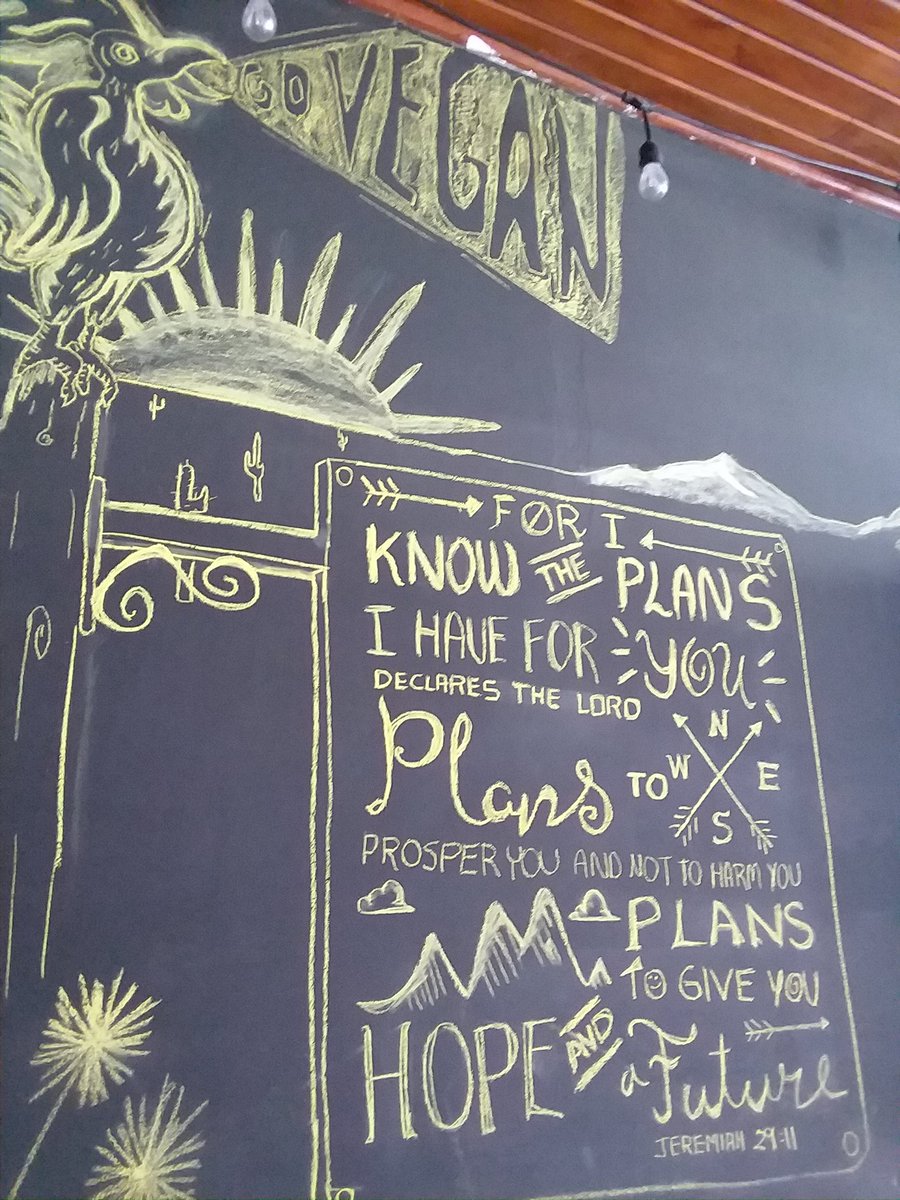 GO VEGAN
FOR I
KNOW THE PLANS
I HAVE FOR YOU
DECLARES THE LORD
Plans TO
N
W E
S
PROSPER YOU AND NOT TO HARM YOU
PLANS
TO GIVE YOU
HOPE AND a Future
JEREMIAH 29:11